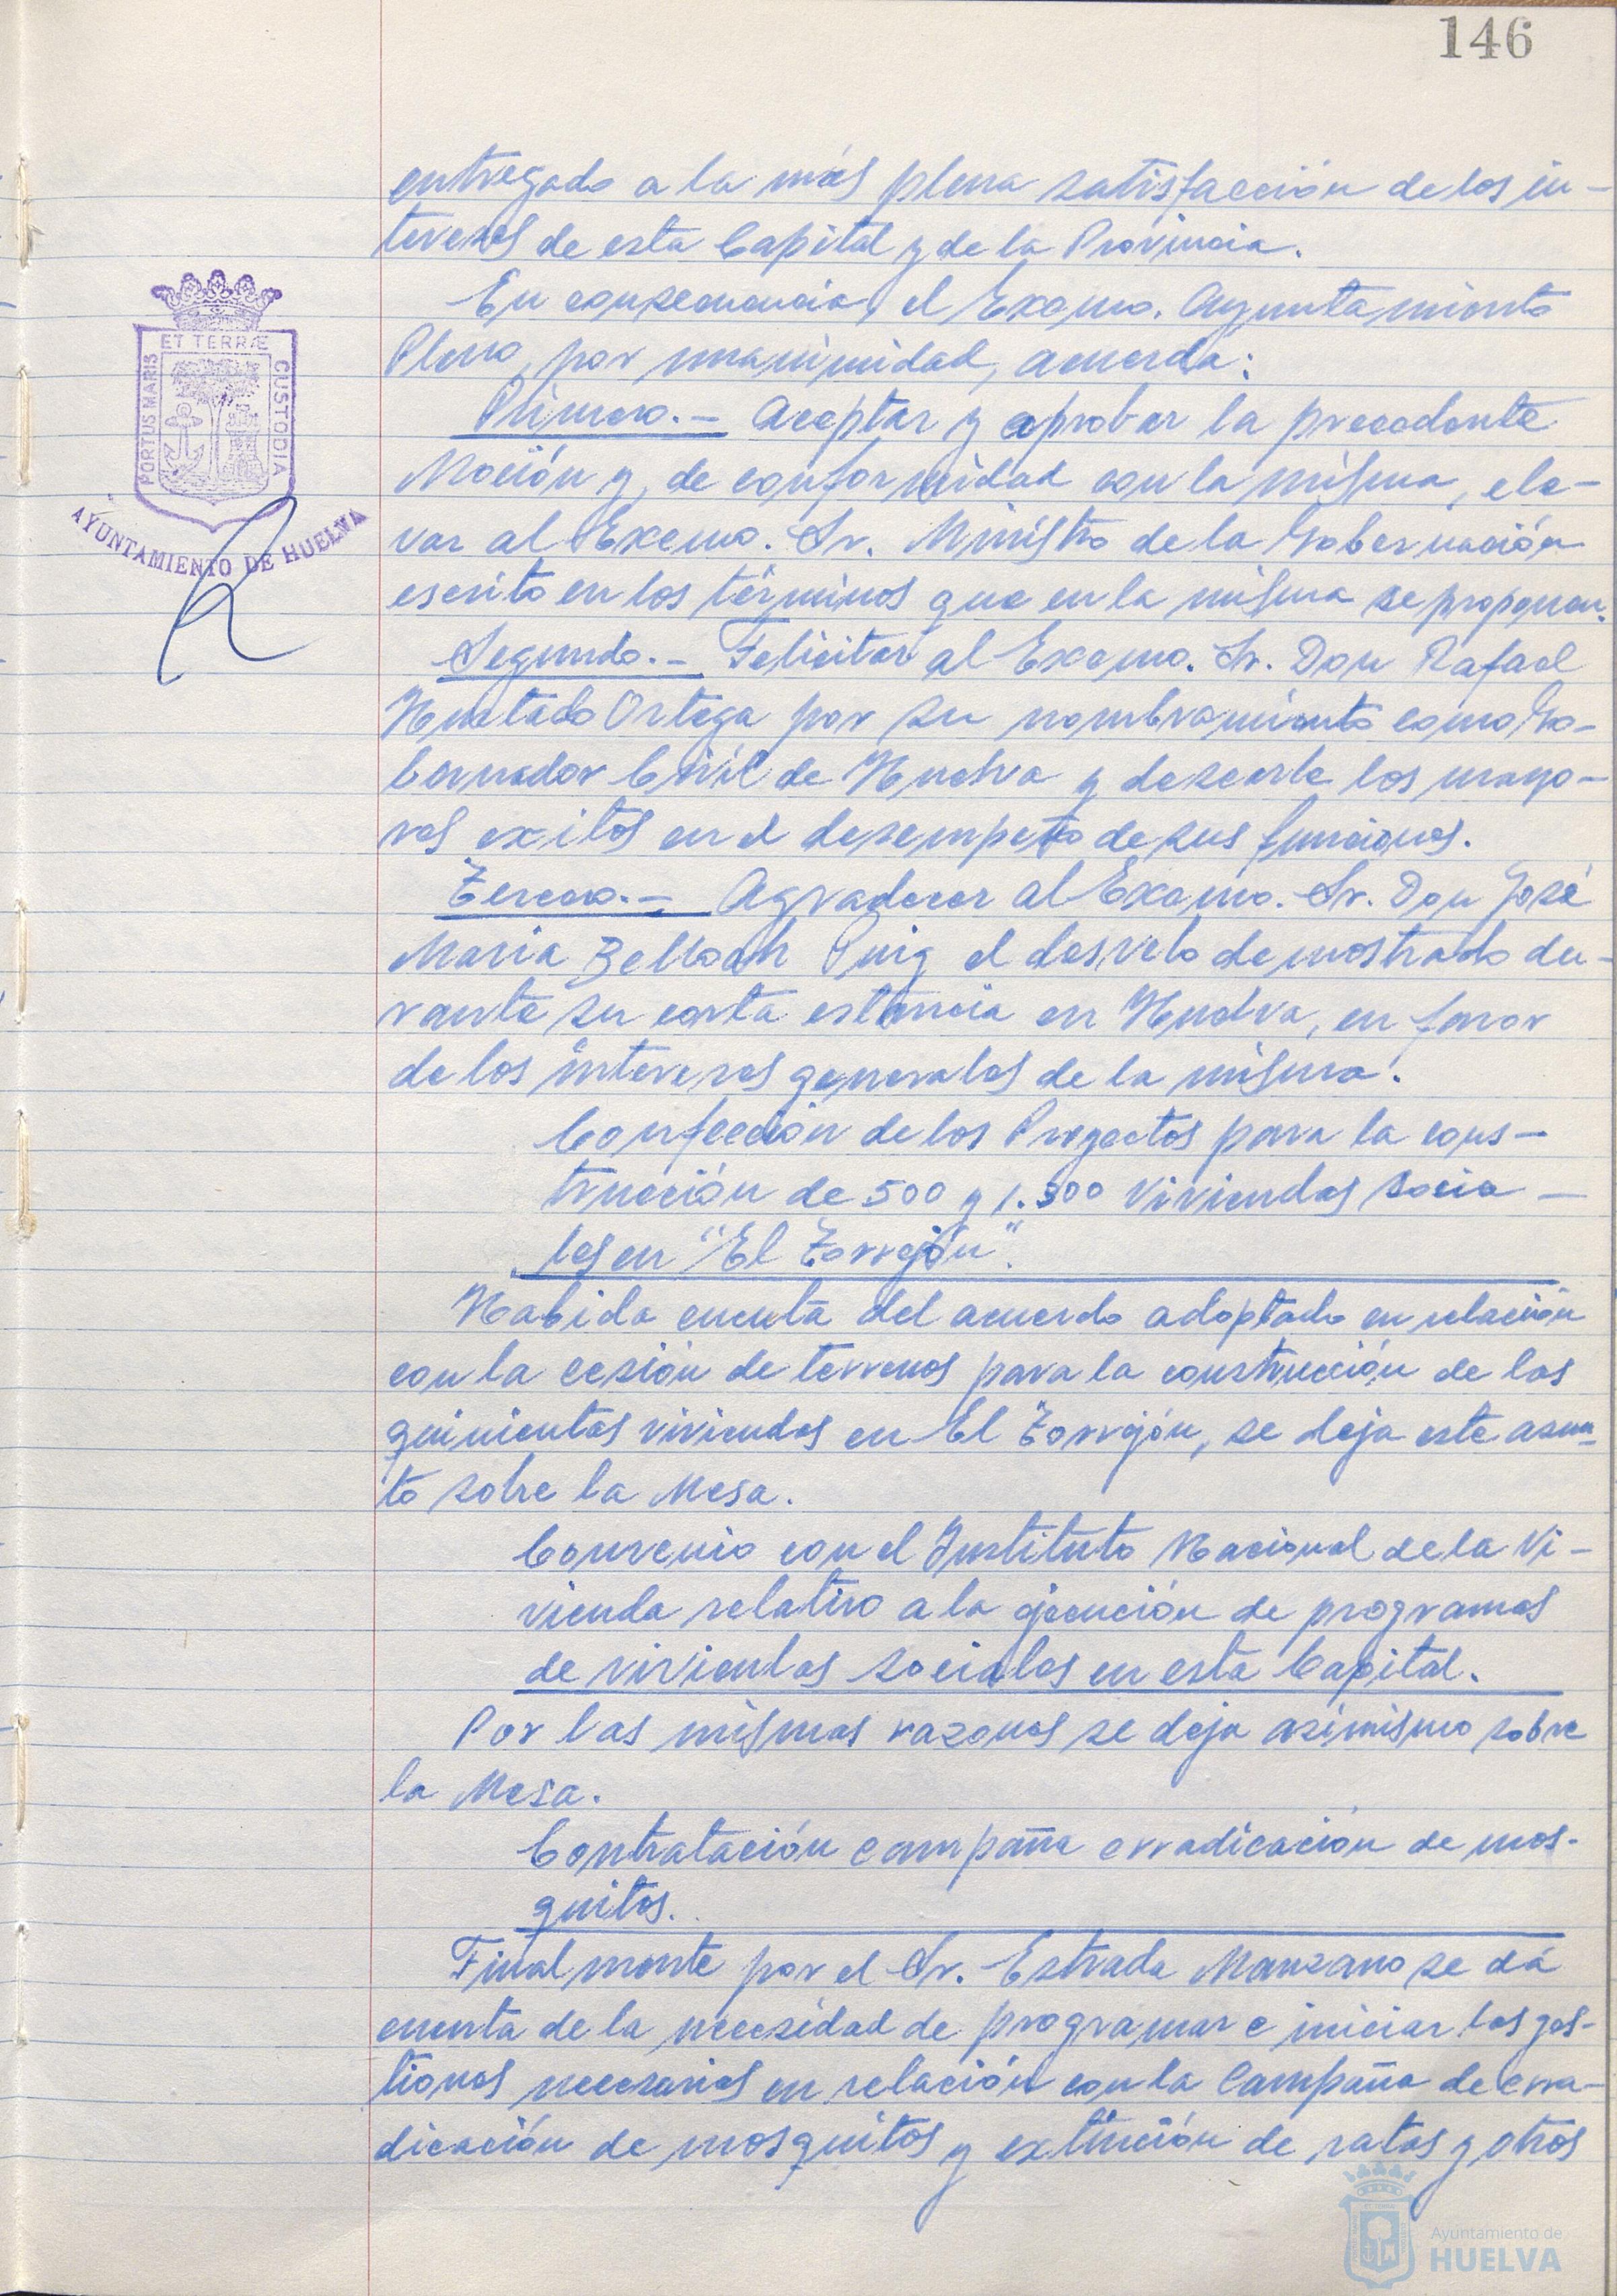 146
entregado a la más plena satisfacción de los in-
tereses de esta Capital y de la Provincia.
En consecuencia, el Excmo. Ayuntamiento
Pleno, por unanimidad, acuerda:
Primero.- Aceptar y aprobar la precedente
Moción y, de conformidad con la misma, ele-
var al Excmo. Sr. Ministro de la Gobernación
escrito en los términos que en la misma se proponen.
Segundo.- Felicitar al Excmo. Sr. Don Rafael
Hurtado Ortega por su nombramiento como Go-
bernador Civil de Huelva y desearle los mayo-
res exitos en el desempeño de sus funciones.
Tercero.- Agradecer al Excmo. Sr. Don José
Maria Belloch Puig el desvelo demostrado du-
rante su corta estancia en Huelva, en favor
de los intereses generales de la misma.
Confección de los Proyectos para la cons-
trucción de 500 y 1.300 Viviendas Socia-
les en "El Torrejón".
Habida cuenta del acuerdo adoptado en relación
con la cesión de terrenos para la construcción de las
quinientas viviendas en El Torrejón, se deja este asun-
to sobre la Mesa.
Convenio con el Instituto Nacional de la Vi-
vienda relativo a la ejecución de programas
de viviendas sociales en esta Capital.
Por las mismas razones se deja asimismo sobre
la Mesa.
Contratación campaña erradicación de mos-
quitos.
Finalmente por el Sr. Estrada Manzano se dá
cuenta de la necesidad de programar e iniciar las ges-
tiones necesarias en relación con la Campaña de erra-
dicación de mosquitos y extinción de ratas y otros
PORTUS MARIS
ET TERRÆ
CUSTODIA
AYUNTAMIENTO DE HUELVA
Ayuntamiento de
HUELVA